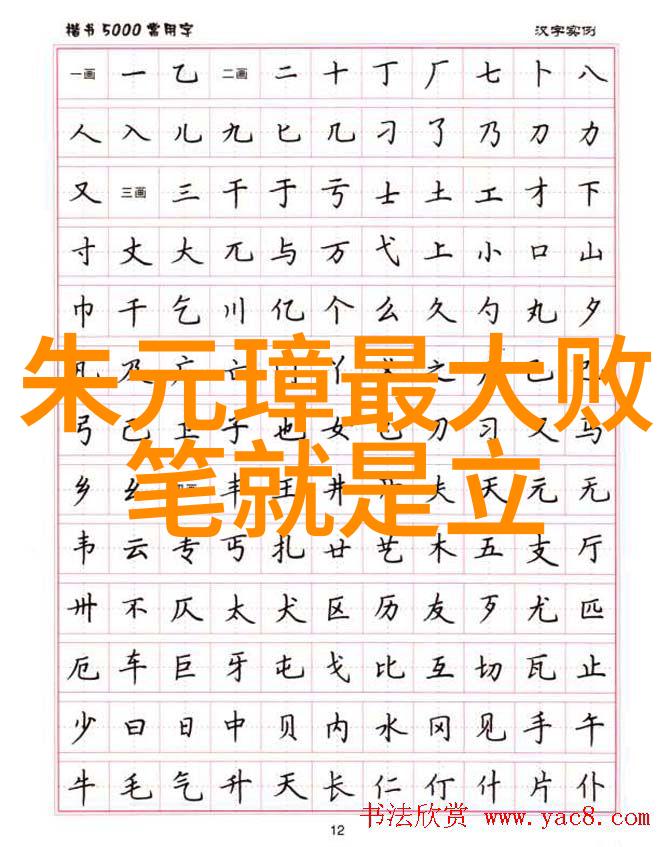 楷书5000常用字 汉字实例
一画 一 乙 二画 二 十 丁 厂 七 卜 八
人 入 儿 九 匕 几 刁 了 乃 刀 力
又 三画 三 干 于 亏 士 土 工 才 下
寸 丈 大 兀 与 万 弋 上 小 口 山
巾 千 乞 川 亿 个 么 久 勺 丸 夕
及 广 亡 门 丫 义 之 己
朱元璋最大败
弓 己 卫 子 也 女 飞 刃 习 叉 马
笔就是立
乡 幺 四画 丰 王 井 夫 天 元 无
韦 云 专 丐 扎 廿 艺 木 五 支 厅
卅 不 仄 太 犬 区 历 友 歹 尤 匹
厄 车 巨 牙 屯 戈 比 互 切 瓦 止
少 曰 日 中 贝 内 水 冈 见 手 午
牛 毛 气 升 夭 长 仁 仃 什 片 仆
12
书法欣赏 www.yac8.com